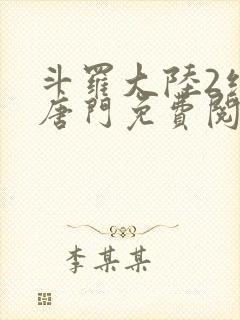 斗羅大陸2
唐門免費閱
李某某